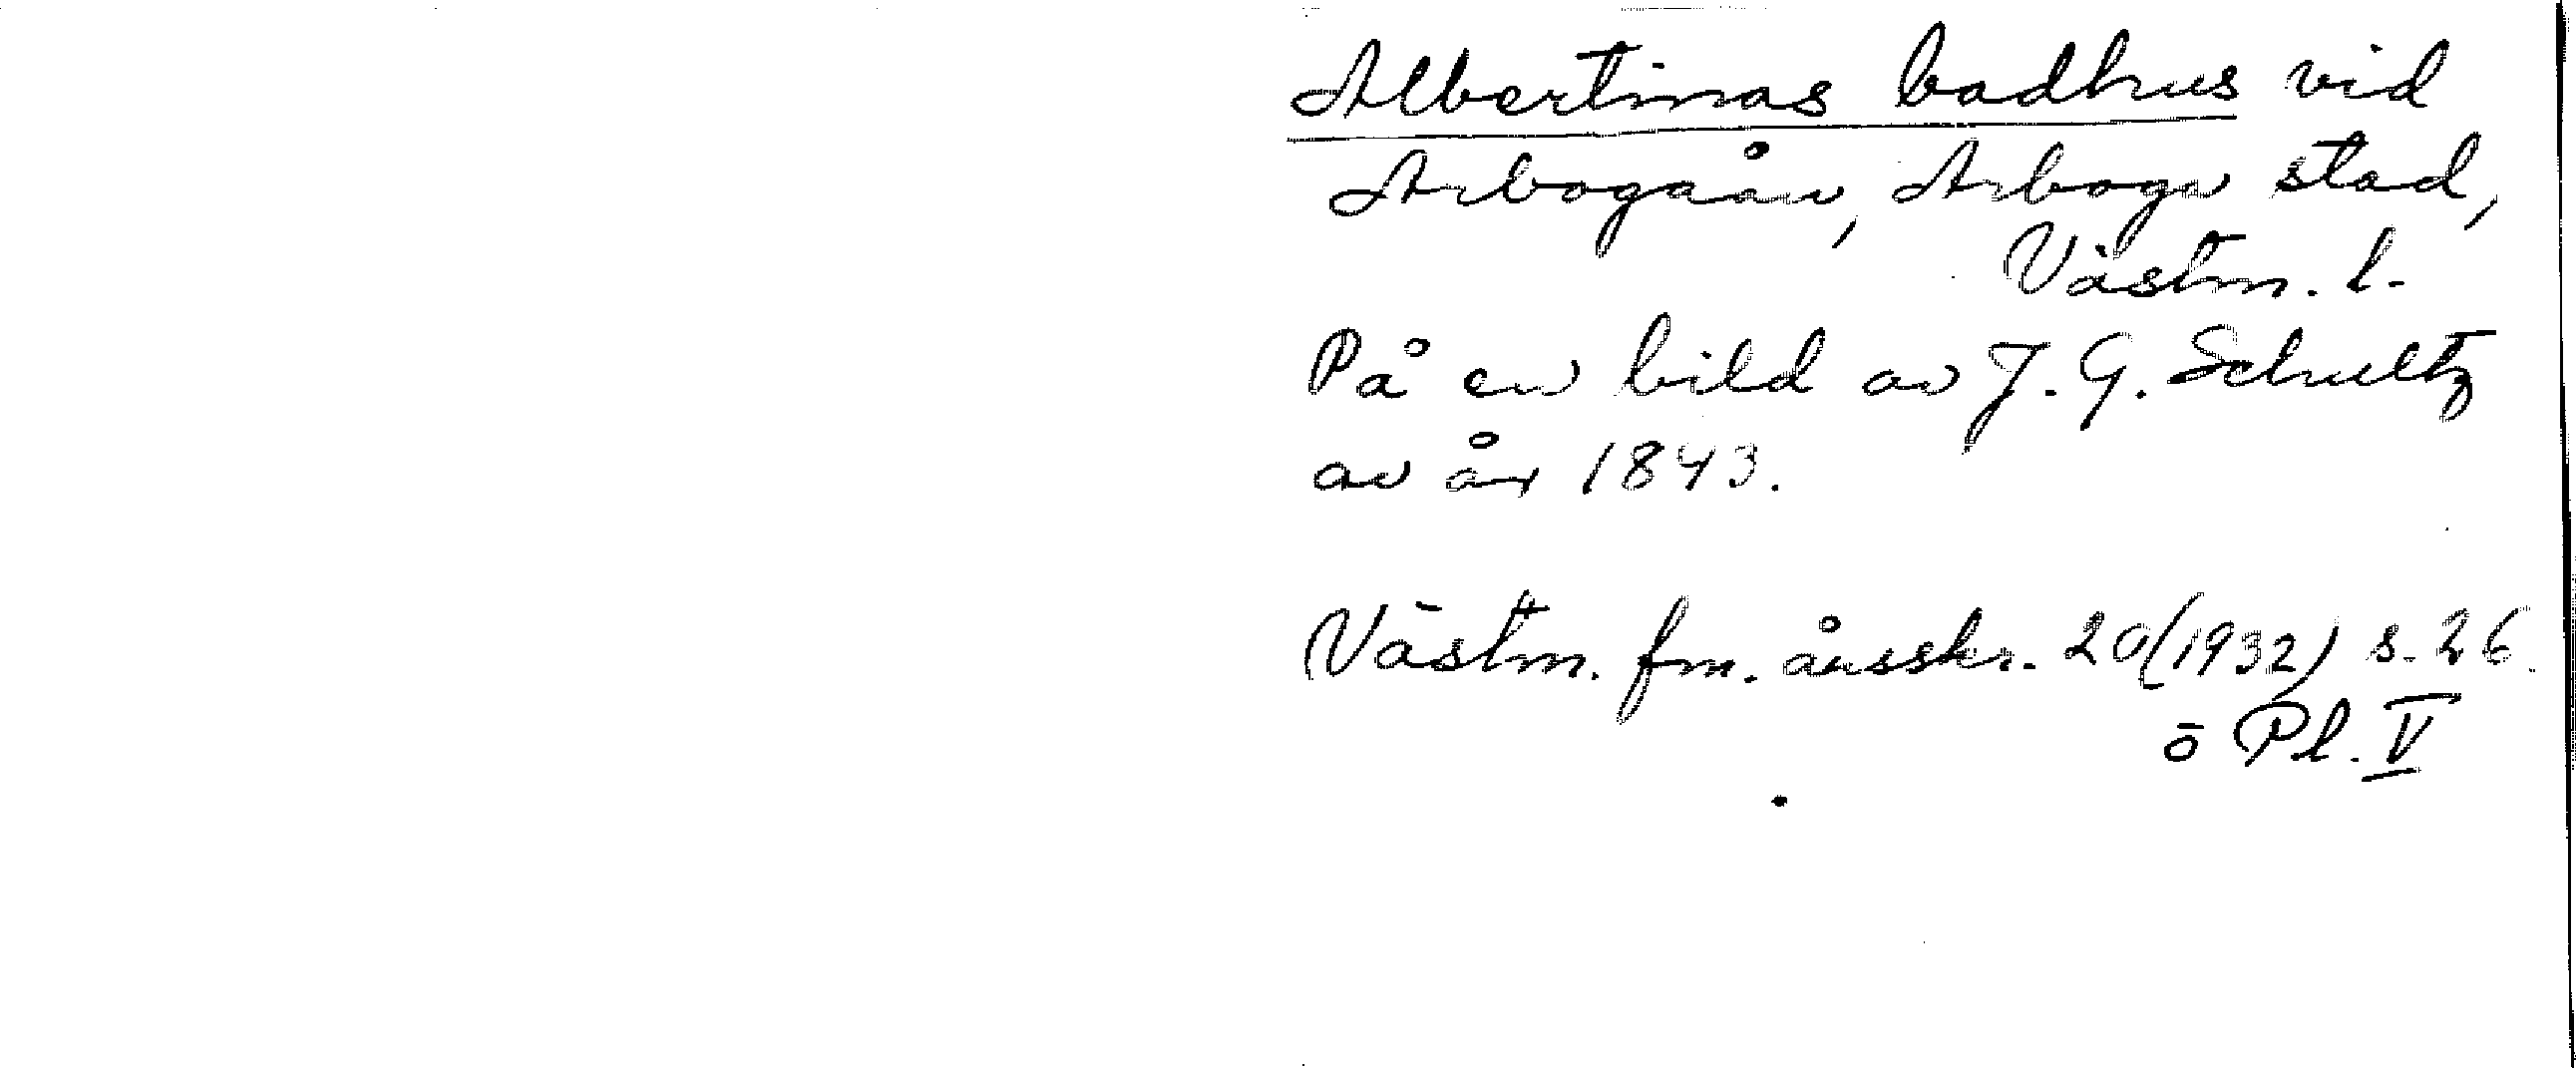 Albertinas badhus vid
Arbogaån, Arboga stad,
Västm. l.
På en bild av J. G. Schultz
av år 1843.
Västm. fm. årsskr. 20 (1932) s. 26.
o Pl. V